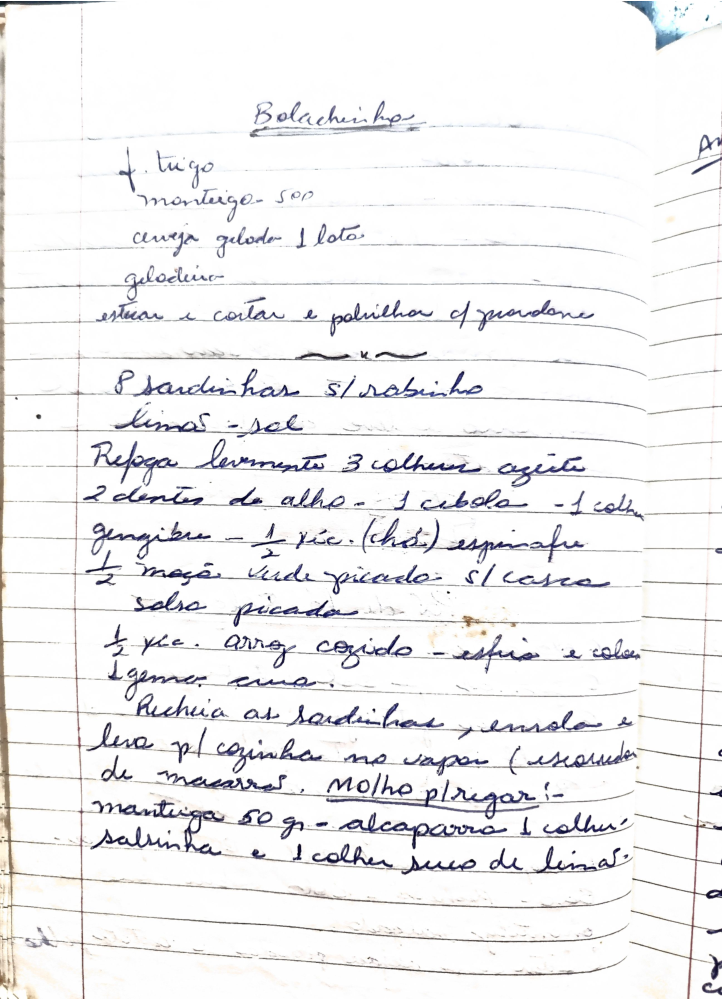 Bolachinha
f. trigo
manteiga - 500
cerveja gelada 1 lata
geladeira
esticar e cortar e polvilhar c/
8 sardinhas s/ rabinho
limão - sal
Refoga levemente 3 colheres azeite
2 dentes de alho - 1 cebola - 1 colher
gengibre - 1/2 xíc. (chá) espinafre
1/2 maçã verde picada s/ casca
salsa picada
1/2 xíc. arroz cozido - esfria e coloca
1 gema crua.
Recheia as sardinhas, enrola e
leva p/ cozinha no vapor (escorredor
de macarrão. Molho p/regar:-
manteiga 50 gr - alcaparra 1 colher.
salsinha e 1 colher suco de limão.